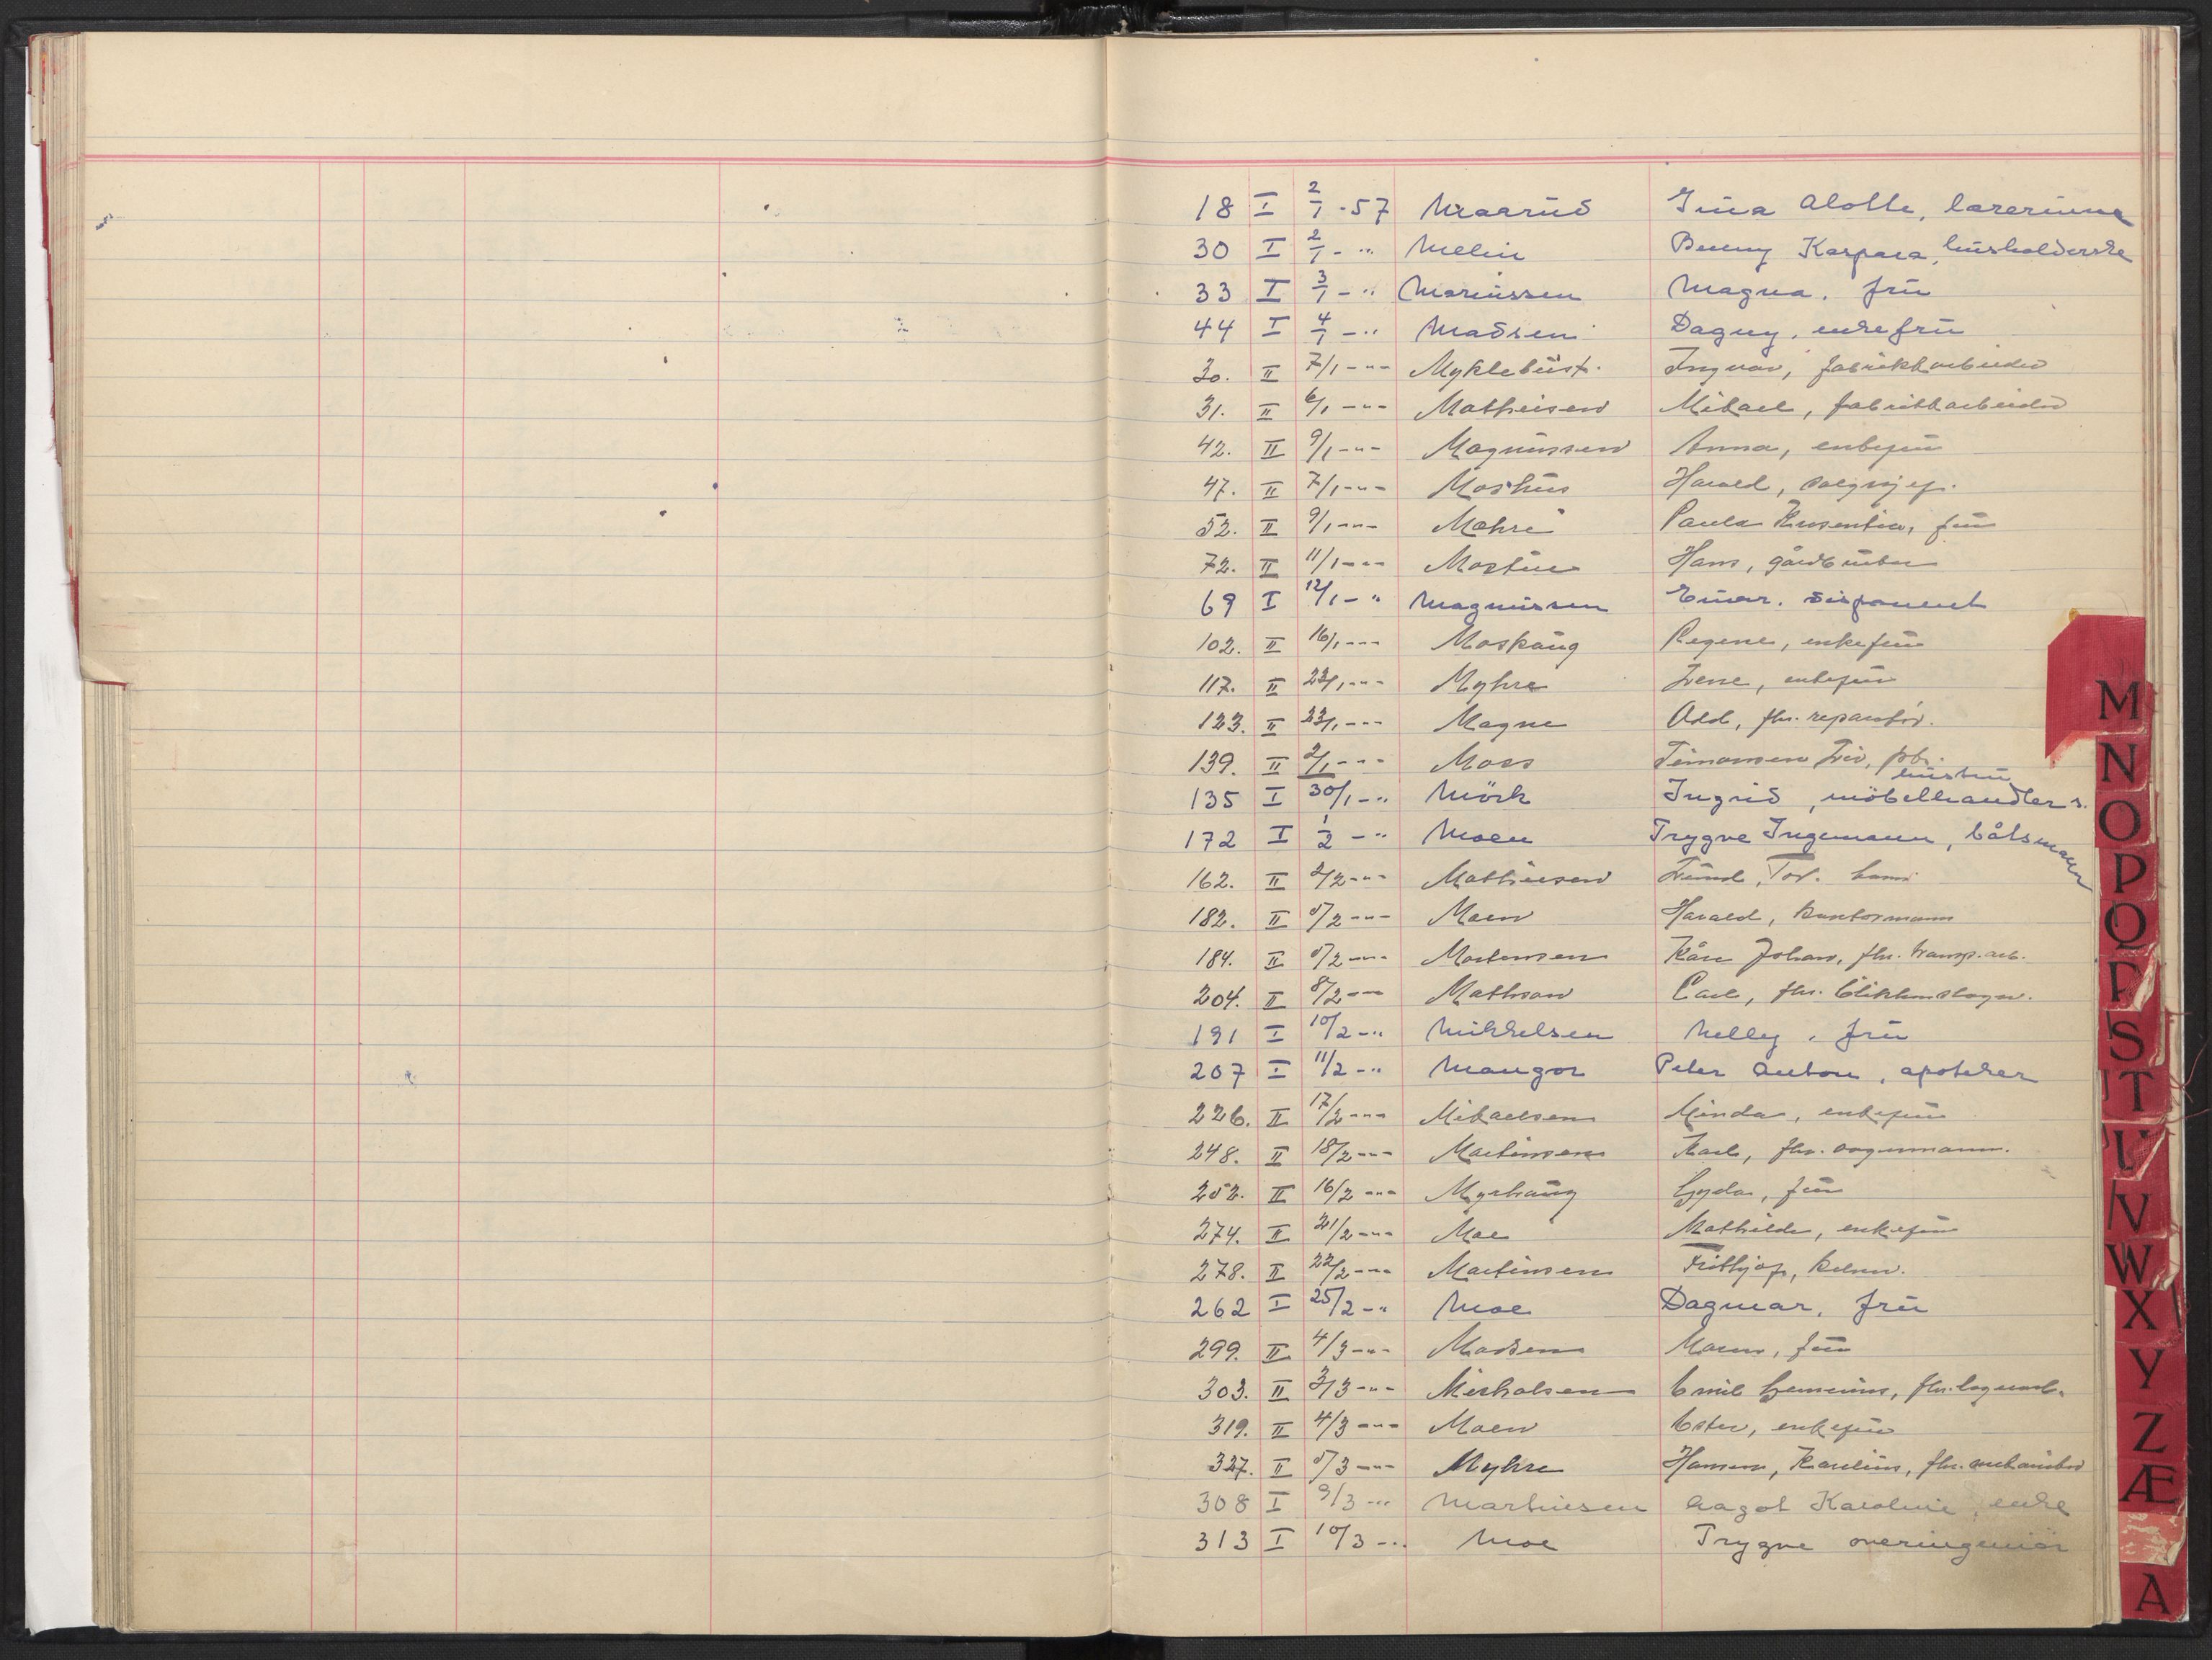 18 I 2/1 -57 Maarud Gina Alotte, lærerinne
30 I 2/1 - " Melin Benny Kaspara, husholderske
33 I 3/1 - " Mariussen Magna, frü
44 I 4/1 - " Madsen Dagny, enkefrü
30. II 7/1 - " - Myklebüst. Ingvar, fabrikkarbeider
31. II 6/1 - " - Matheisen Mikael, fabrikkarbeider
42. II 9/1 - " - Magnüssen Anna, enkefrü
47. II 7/1 - " - Moshüs Harald, salgssjef.
52. II 9/1 - " - Mæhre Paula, frü
72. II 11/1 - " - Mostüe Hans, gårdbrüker
69 I 12/1 - " Magnüssen Einar, disponent
102. II 16/1 - " - Moshaüg Regene, enkefrü
117. II 23/1 - " - Myhre Lene, enkefrü
123. II 23/1 - " - Magne Odd, fhv. reparatør.
139. II 2/1 - " - Moss Simonsen Liv, frk.
hüstrü
135 I 30/1 - " Mörk Ingrid, möbelhandlers.
172 I 1/2 - " Moen Trygve Ingemann, båtsmann
162. II 2/2 - " - Mathiesen Lünd, Tor.
182. II 5/2 - " - Moen Harald, kontormann
184. II 5/2 - " - Mortensen Kåre Johan, fhv. transp.arb.
204. II 8/2 - " - Mathson Carl, fhv. blikkenslager.
191 I 10/2 - " Mikkelsen Nelly, frü
207 I 11/2 - " Mangor Peter Anton, apoteker
226. II 17/2 - " - Mikaelsen Minda, enkefrü
248. II 18/2 - " - Martinsen Karl, fhv. vognmann.
252. II 16/2 - " - Myrhaüg Gyda, frü
274. II 21/2 - " - Moe Mathilde, enkefrü
278. II 22/2 - " - Martinsen Fritthjof, kelner.
262 I 25/2 - " Moe Dagmar, frü
299. II 4/3 - " - Madsen Maren, frü
303. II 3/3 - " - Mickalsen Emil, fhv.
319. II 4/3 - " - Moen Ester, enkefrü
327. II 5/3 - " - Myhre Hansen, Karelius, fhv. mekaniker
308 I 9/3 - " Martinsen Aagot Karoline, enke
313 I 10/3 - " Moe Trygve overingeniör
M
N
O
P
Q
R
S
T
U
V
W
X
Y
Z
Æ
A